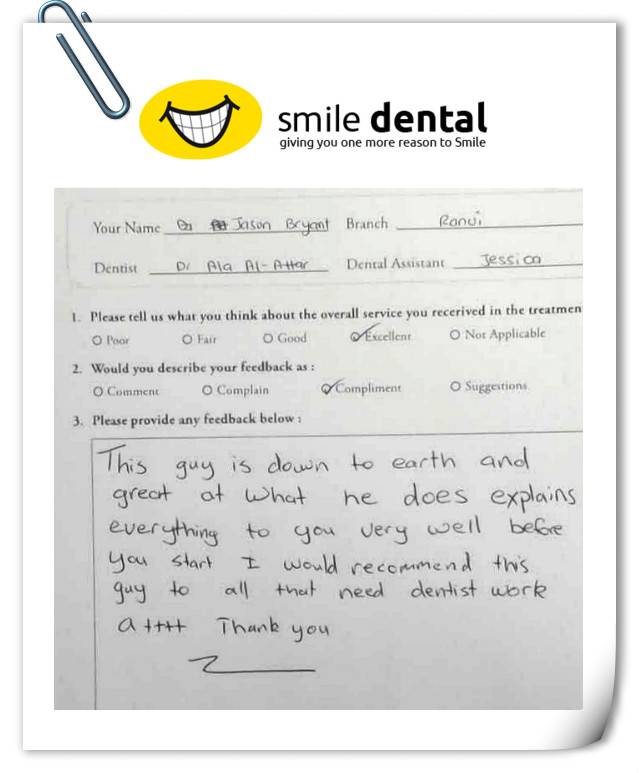 smile dental
giving you one more reason to Smile
Your Name Jason Bryant Branch Ranui
Dentist Dr Ala Al-Attar Dental Assistant Jessica
1. Please tell us what you think about the overall service you recerived in the treatmen
Poor Fair Good Excellent Not Applicable
2. Would you describe your feedback as :
Comment Complain Compliment Suggestions
3. Please provide any feedback below :
This guy is down to earth and
great at what he does explains
everything to you very well before
you start I would recommend this
guy to all that need dentist work
a ++++ Thank you